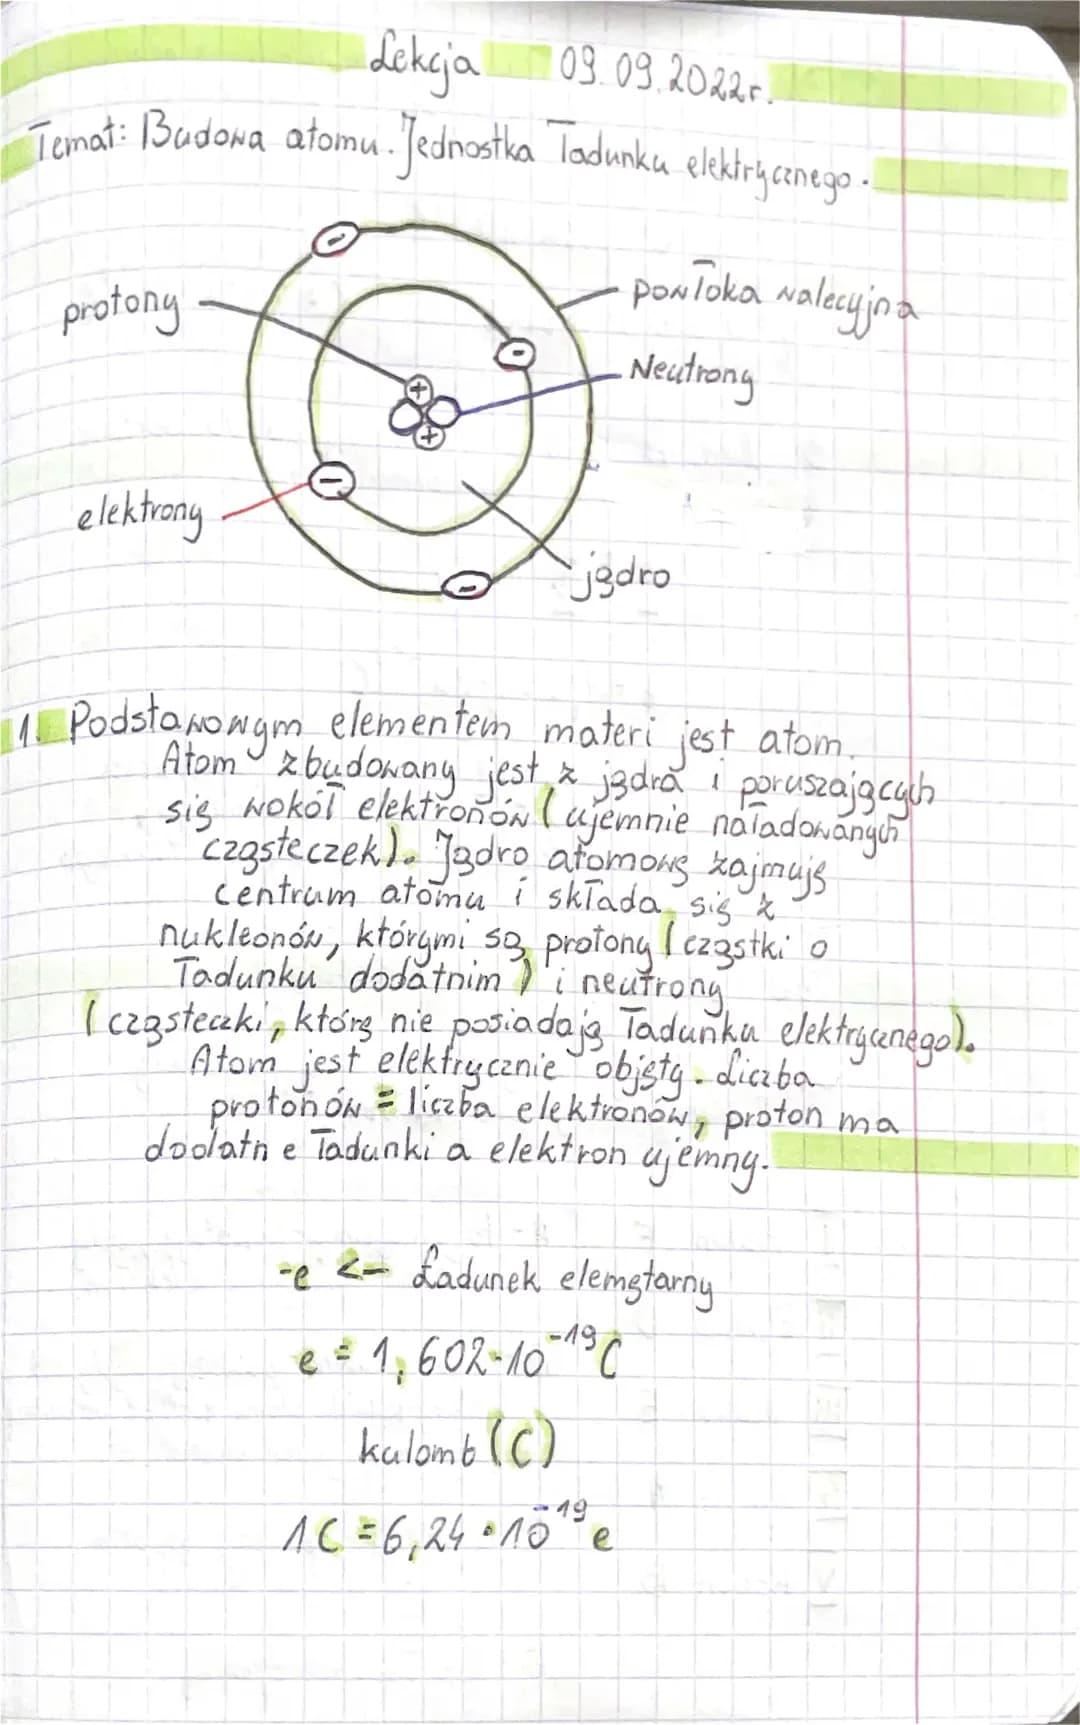 Lekcja 09.09.2022r.
Temat: Budowa atomu. Jednostka Ładunku elektrycznego.
protony
powłoka walecyjna
Neutrony
elektrony
jądro
1. Podstawowym elementem materi jest atom.
Atom zbudowany jest z jądra i poruszających
się wokół elektronów (ujemnie naładowanych
cząsteczek). Jądro atomowę zajmuję
centrum atomu i składa się z
nukleonów, którymi są protony (cząstki o
Ładunku dodatnim) i neutrony
(cząsteczki, którę nie posiadają Ładunku elektrycznego).
Atom jest elektrycznie objęty. Liczba
protonów = liczba elektronów, proton ma
dodatn e Ładunki a elektron ujemny.
-e <- Ładunek elemętarny
e = 1,602·10⁻¹⁹C
kulomb (C)
1C = 6,24 · 10⁻¹⁹ e